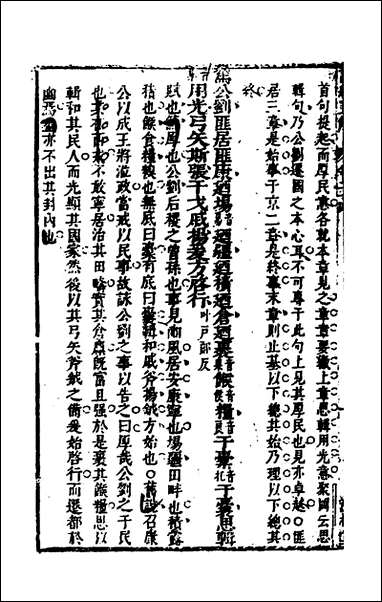 首句提起而厚民意各就本章見之章章要繳上章思輯用光意家國云思
輯句乃公劉遷國之本心耳不可專于此句上見其厚民也見亦卓越○匪
居三章是始事于京二章是終事末章則止基以下總其始乃理以下總其
終
篤公劉匪居匪康迺埸迺疆迺積迺倉迺裹餱糧于橐于囊思輯
用光弓矢斯張干戈戚揚爰方啓行
賦也篤厚也公劉后稷之曾孫也事見豳風居安康寧也埸疆田畔也積露
積也餱食糧糗也無底曰橐有底曰囊輯和戚斧揚鉞方始也○舊說召康
公以成王將涖政當戒以民事故詠公劉之事以告之曰厚哉公劉之于民
也其在西戎不敢寧居治其田疇實其倉廩既富且强於是裹其餱糧思以
輯和其民人而光顯其國家然後以其弓矢斧鉞之備爰始啓行而遷都於
豳焉 亦不出其封內也